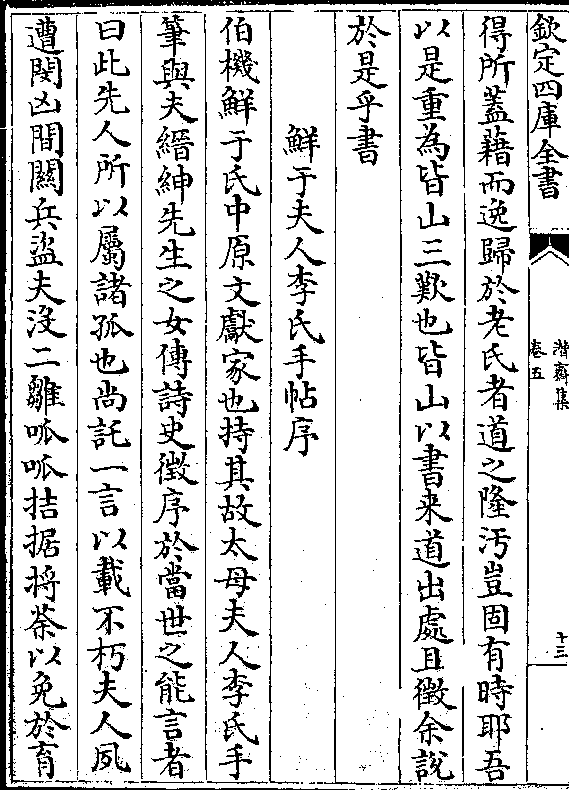 欽定四庫全書
潛齋集
卷五
十三
得所蓋藉而逸歸於老氏者道之隆汚豈固有時耶吾
以是重為皆山三歎也皆山以書来道出處且徵余說
於是乎書
鮮于夫人李氏手帖序
伯機鮮于氏中原文獻家也持其故太母夫人李氏手
筆與夫縉紳先生之女傳詩史徵序於當世之能言者
曰此先人所以屬諸孤也尚託一言以載不朽夫人夙
遭閔凶間關兵盜夫没二雛呱呱拮据捋荼以免於育